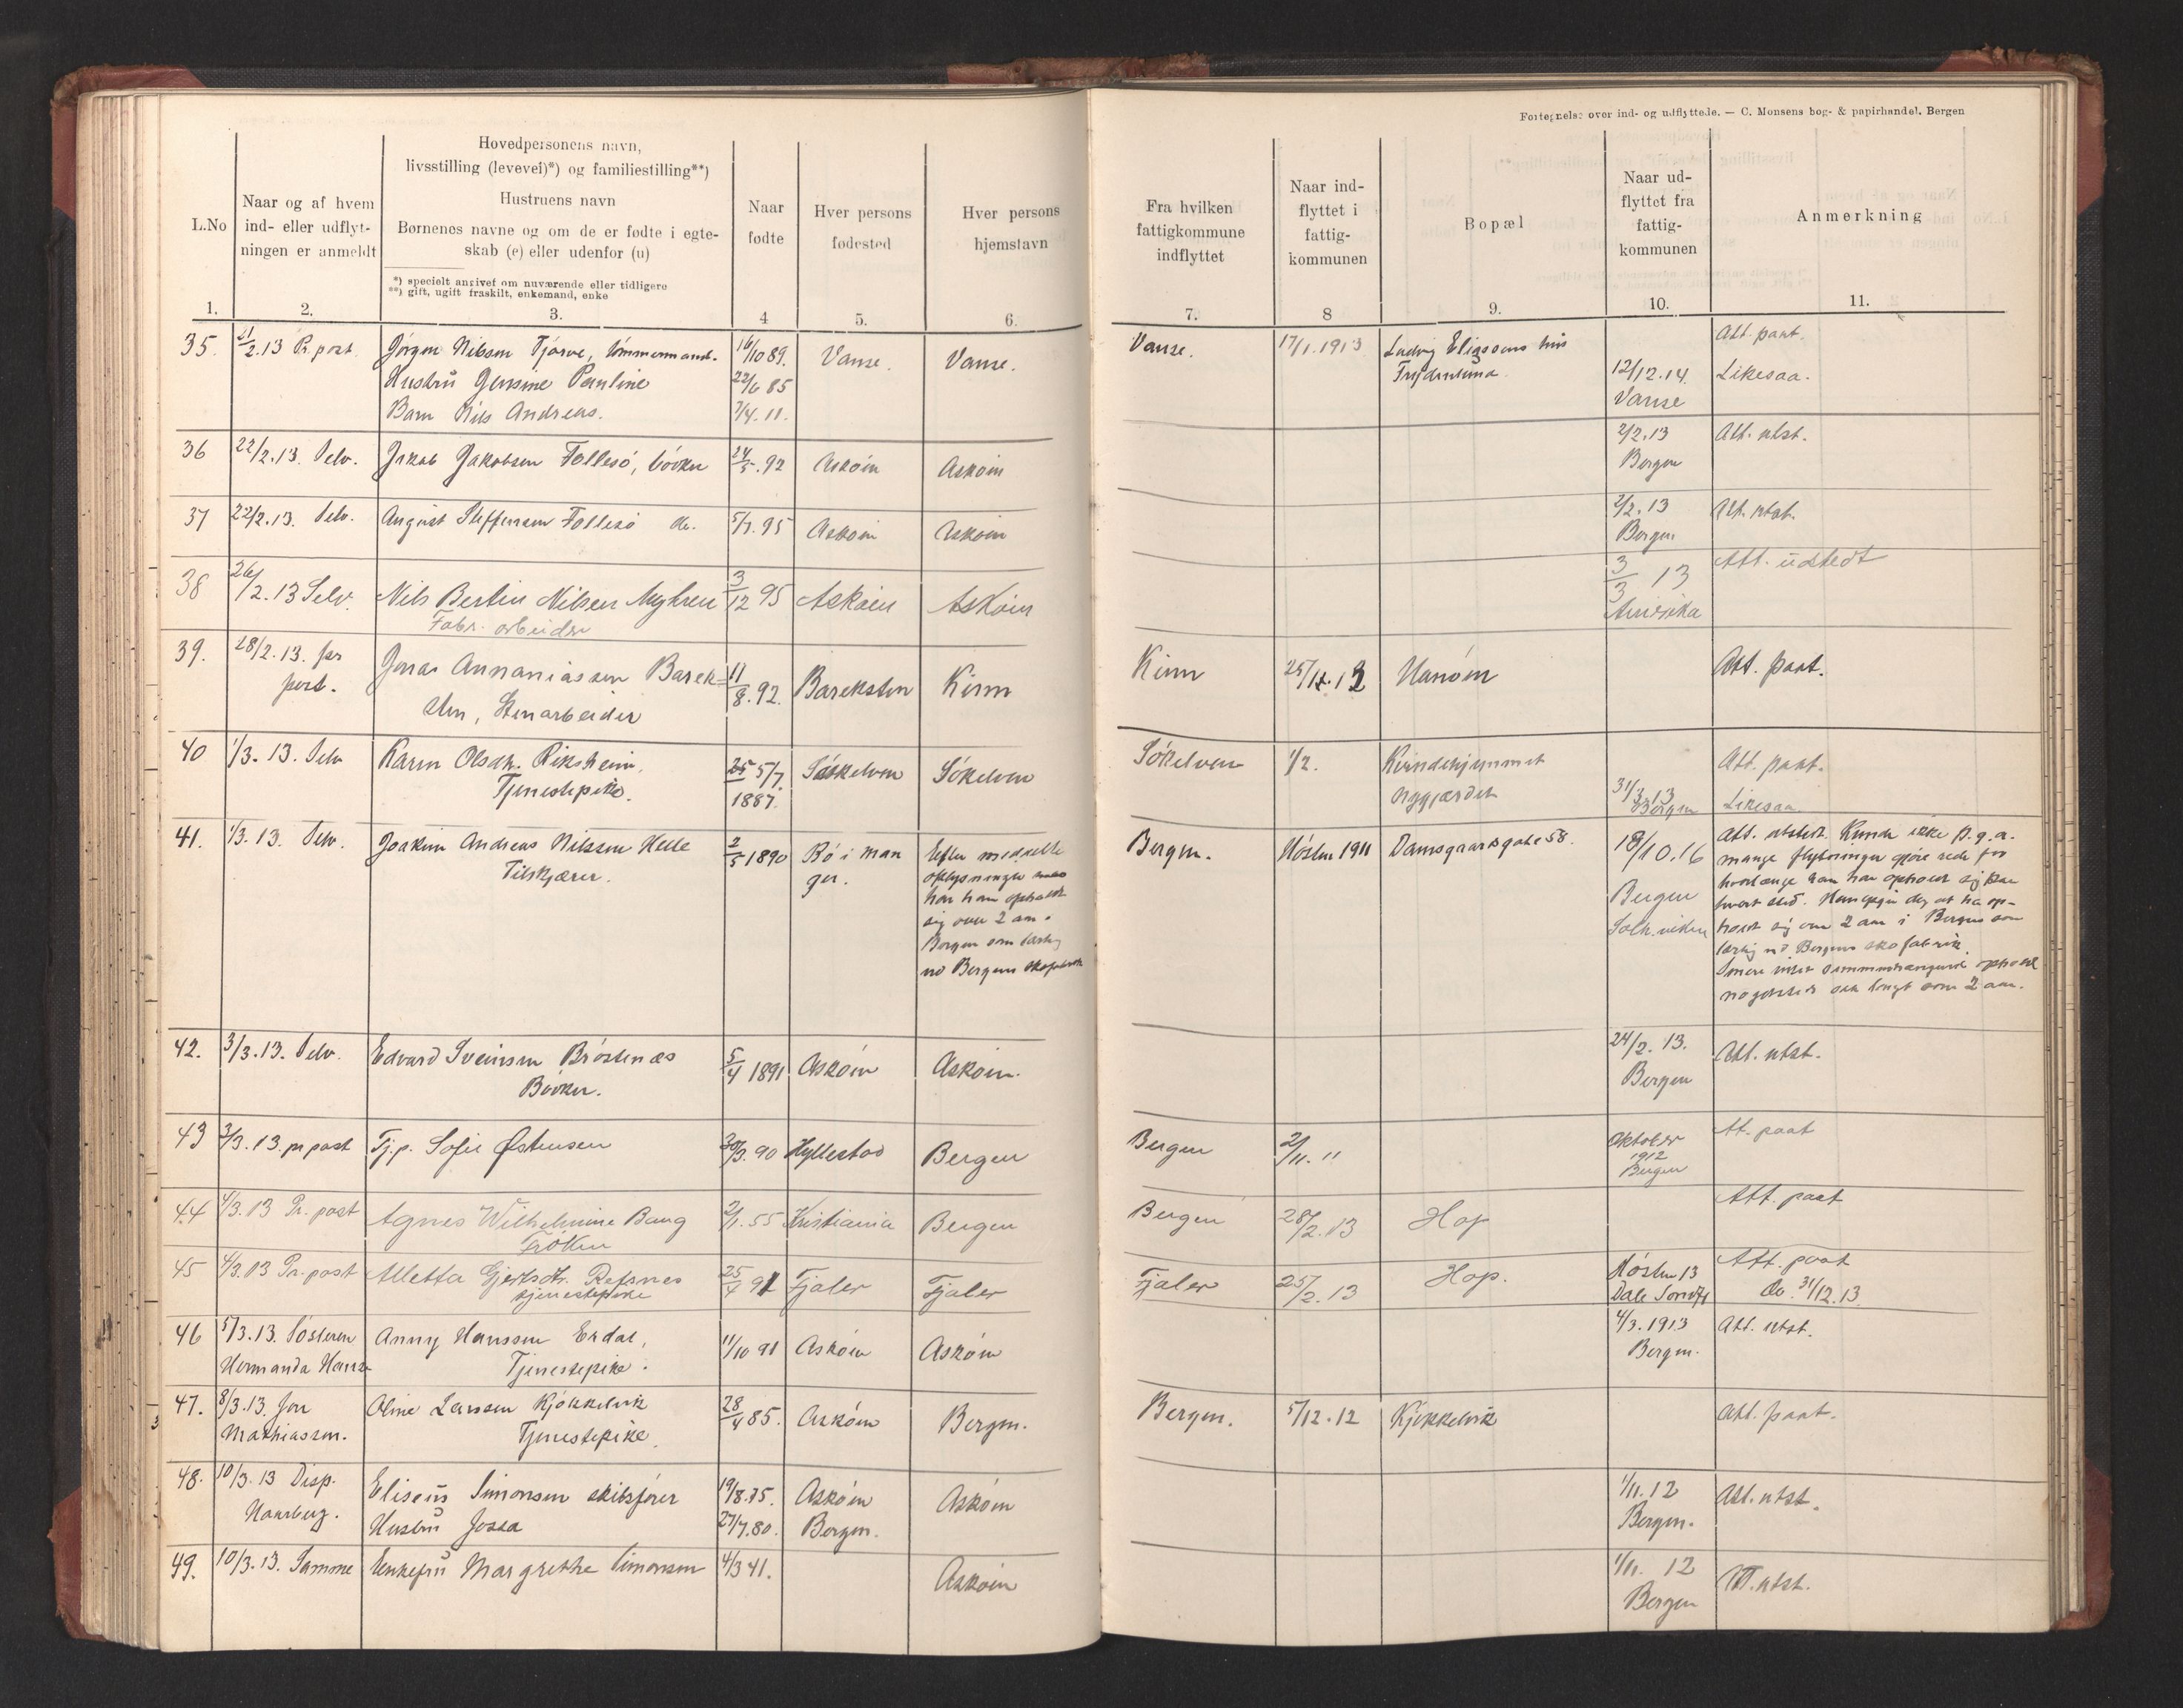 Fortegnelse over ind- og udflyttede. — C. Monsens bog- & papirhandel, Bergen
L.No
Naar og af hvem
ind- eller udflyt-
ningen er anmeldt
Hovedpersonens navn,
livsstilling (levevei)*) og familiestilling**)
Hustruens navn
Børnenes navne og om de er fødte i egte-
skab (e) eller udenfor (u)
*) specielt angivet om nuværende eller tidligere
**) gift, ugift fraskilt, enkemand, enke
Naar
fødte
Hver persons
fødested
Hver persons
hjemstavn
Fra hvilken
fattigkommune
indflyttet
Naar ind-
flyttet i
fattig-
kommunen
Bopæl
Naar ud-
flyttet fra
fattig-
kommunen
Anmerkning
1. 2. 3. 4 5. 6. 7. 8 9. 10. 11.
35. 21/2.13 Pr. post. Jörgen Nilsen Tjörve, tömmermand. 16/10 89. Vanse. Vanse. Vanse. 17/1.1913 Ludvig Eliassens hus Att. paat.
Hustrü Gensine Pauline 22/6 85 12/12.14. Likesaa.
Barn Nils Andreas. 7/4. 11. Vanse
36 22/2.13. Selv. Jakob Jakobsen Follesö, bödker 24/5.92 Asköin Asköin 2/2.13 Att. utst.
Bergen
37 22/2.13. Selv. August Steffensen Follesö do. 5/7.95 Asköin Asköin 2/2.13 Att. utst.
Bergen
38 26/2.13 Selv. Nils Bertin Nilsen Myhren 3/12 95 Asköin Asköin 3/3 13 Att. üdstedt
Fabr. arbeider Amerika
39. 28/2.13. per Jonas Annaniassen Barek= 11/8.92. Bareksten Kinn Kinn 25/11.12 Hanöen Att. paat.
post. sten, Stenarbeider
40 1/3.13. Selv Karen Olsdtr. Riksheim, 25 5/7. Söskelven Sökelven Sökelven 1/2. Kvindehjemmet Att. paat.
Tjenestepike. 1887. Nygjærdet 31/3.13 Likesaa
Bergen
41. 1/3.13. Selv. Joakim Andreas Nilssen Helle 2/5 1890 Bö i Man Efter meddelte Bergen. Hösten 1911 Damsgaardsgate 58. 18/10.16 Att. utstedt. Kunde ikke p.g.a.
Tilskjærer. ger. oplysninger mange flytninger gjöre rede for
har han opholdt hvorlænge han har opholdt sig paa
sig over 2 aar i Bergen hvert sted. Han opgir dog at ha op-
Bergen som Solh.viken holdt sig over 2 aar i Bergen som
ved Bergens skofabrik ved Bergens skofabrik.
Senere intet sammenhængende ophold
nogetsteds saa langt som 2 aar.
42. 3/3.13. Selv. Edvard Sveinsen Bröstenæs 5/4 1891 Asköin Asköin. 24/2.13. Att. utst.
Bödker. Bergen
43 3/3.13. pr post Tj.p. Sofie Østensen 30/9.90 Hyllestad Bergen Bergen 2/11.11 Oktober Att. paat
1912
Bergen
44 4/3.13 Pr. post Agnes Wilhelmine Baug 2/1.55 Kristiania Bergen Bergen 28/2.13 Hop Att. paat
Fröken
45 4/3.13 Pr. post Alletta Gjertsdtr. Refsnes 25/4 91 Fjaler Fjaler Fjaler 25/2.13 Hop. Hösten 13 Att. paat
tjenestepike Dale Söndfj do. 31/12.13.
46 5/3.13. Sösteren Anny Hanssen Erdal, 11/10 91 Asköin Asköin 4/3.1913 Att. utst.
Hermanda Hanse Tjenestepike. Bergen.
47. 8/3.13. Jon Oline Larssen Kjökkelvik 28/4 85. Asköin Bergen. Bergen. 5/12.12 Kjökkelvik Att. paat.
Mathiassen. Tjenestepike.
48. 10/3.13 Disp. Eliseüs Simonsen skibsförer 19/8.75. Asköin Asköin 1/11.12 Att. utst.
Haarberg. Hustrü Jossa 27/7.80. Bergen. Bergen.
49. 10/3.13. Samme Enkefrü Margrethe Simonsen 4/3 41. Asköin 1/11.12 Att. utst.
Bergen